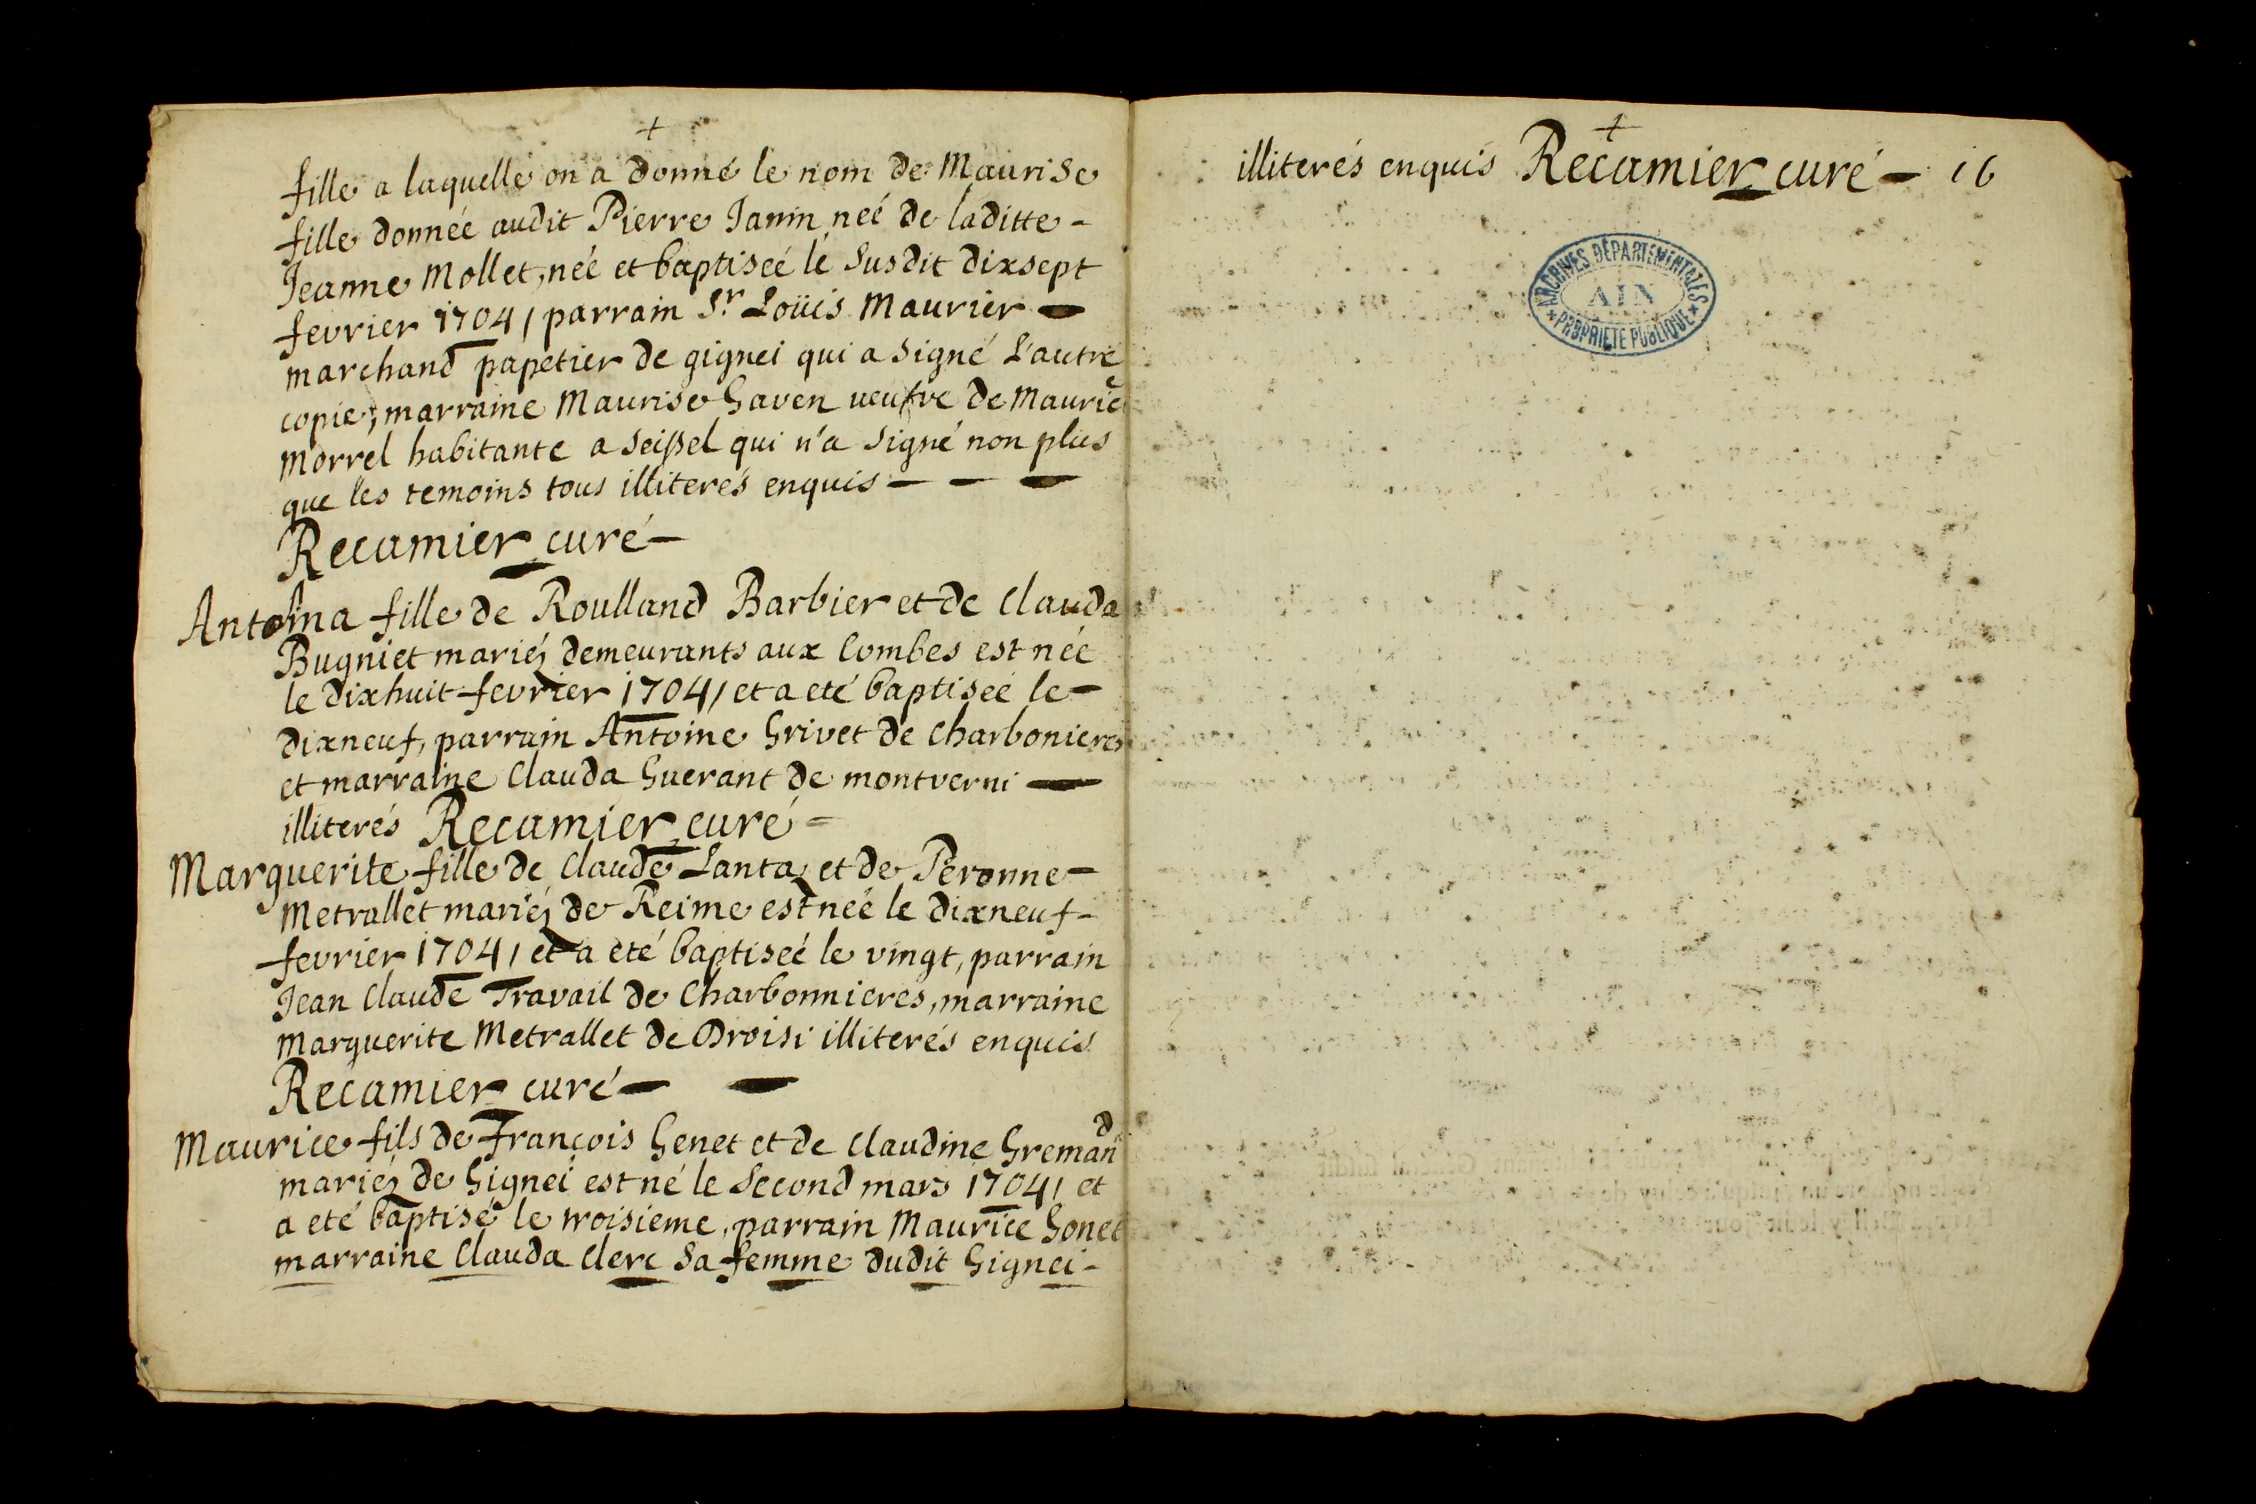 +
fille a laquelle on a donné le nom de Maurise
fille donnée audit Pierre Janin neé de laditte -
Jeanne Mollet, née et baptiseé le susdit dixsept
fevrier 1704 / parrain Sr Loüis Maurier —
marchand papetier de gignei qui a signé l'autre
copie, marraine Maurise Gaven veufve de Maurice
Morrel habitante a Seissel qui n'a signé non plus
que les temoins tous illiterés enquis — — —
Recamier curé —
Antoina fille de Roulland Barbier et de Clauda
Bugniet mariéz demeurants aux Combes est née
le dixhuit fevrier 1704 / et a eté baptiseé le —
dixneuf, parrain Antoine Grivet de Charbonieres
et marraine Clauda Guerant de montverni —
illiterés Recamier curé -
Marguerite fille de Claude Lanta et de Peronne —
Metrallet mariéz de Reime est neé le dixneuf -
fevrier 1704 / et a eté baptiseé le vingt, parrain
Jean Claude Travail de Charbonnieres, marraine
Marguerite Metrallet de Droisi illiterés enquis
Recamier curé — —
Maurice fils de François Genet et de Claudine Gremand
mariéz de Gignei est né le second mars 1704 / et
a eté baptisé le troisieme, parrain Maurice Gonet
marraine Clauda Clerc sa femme dudit Gignei -
+
illiterés enquis Recamier curé — 16
ARCHIVES DÉPARTEMENTALES
AIN
* PROPRIÉTÉ PUBLIQUE *